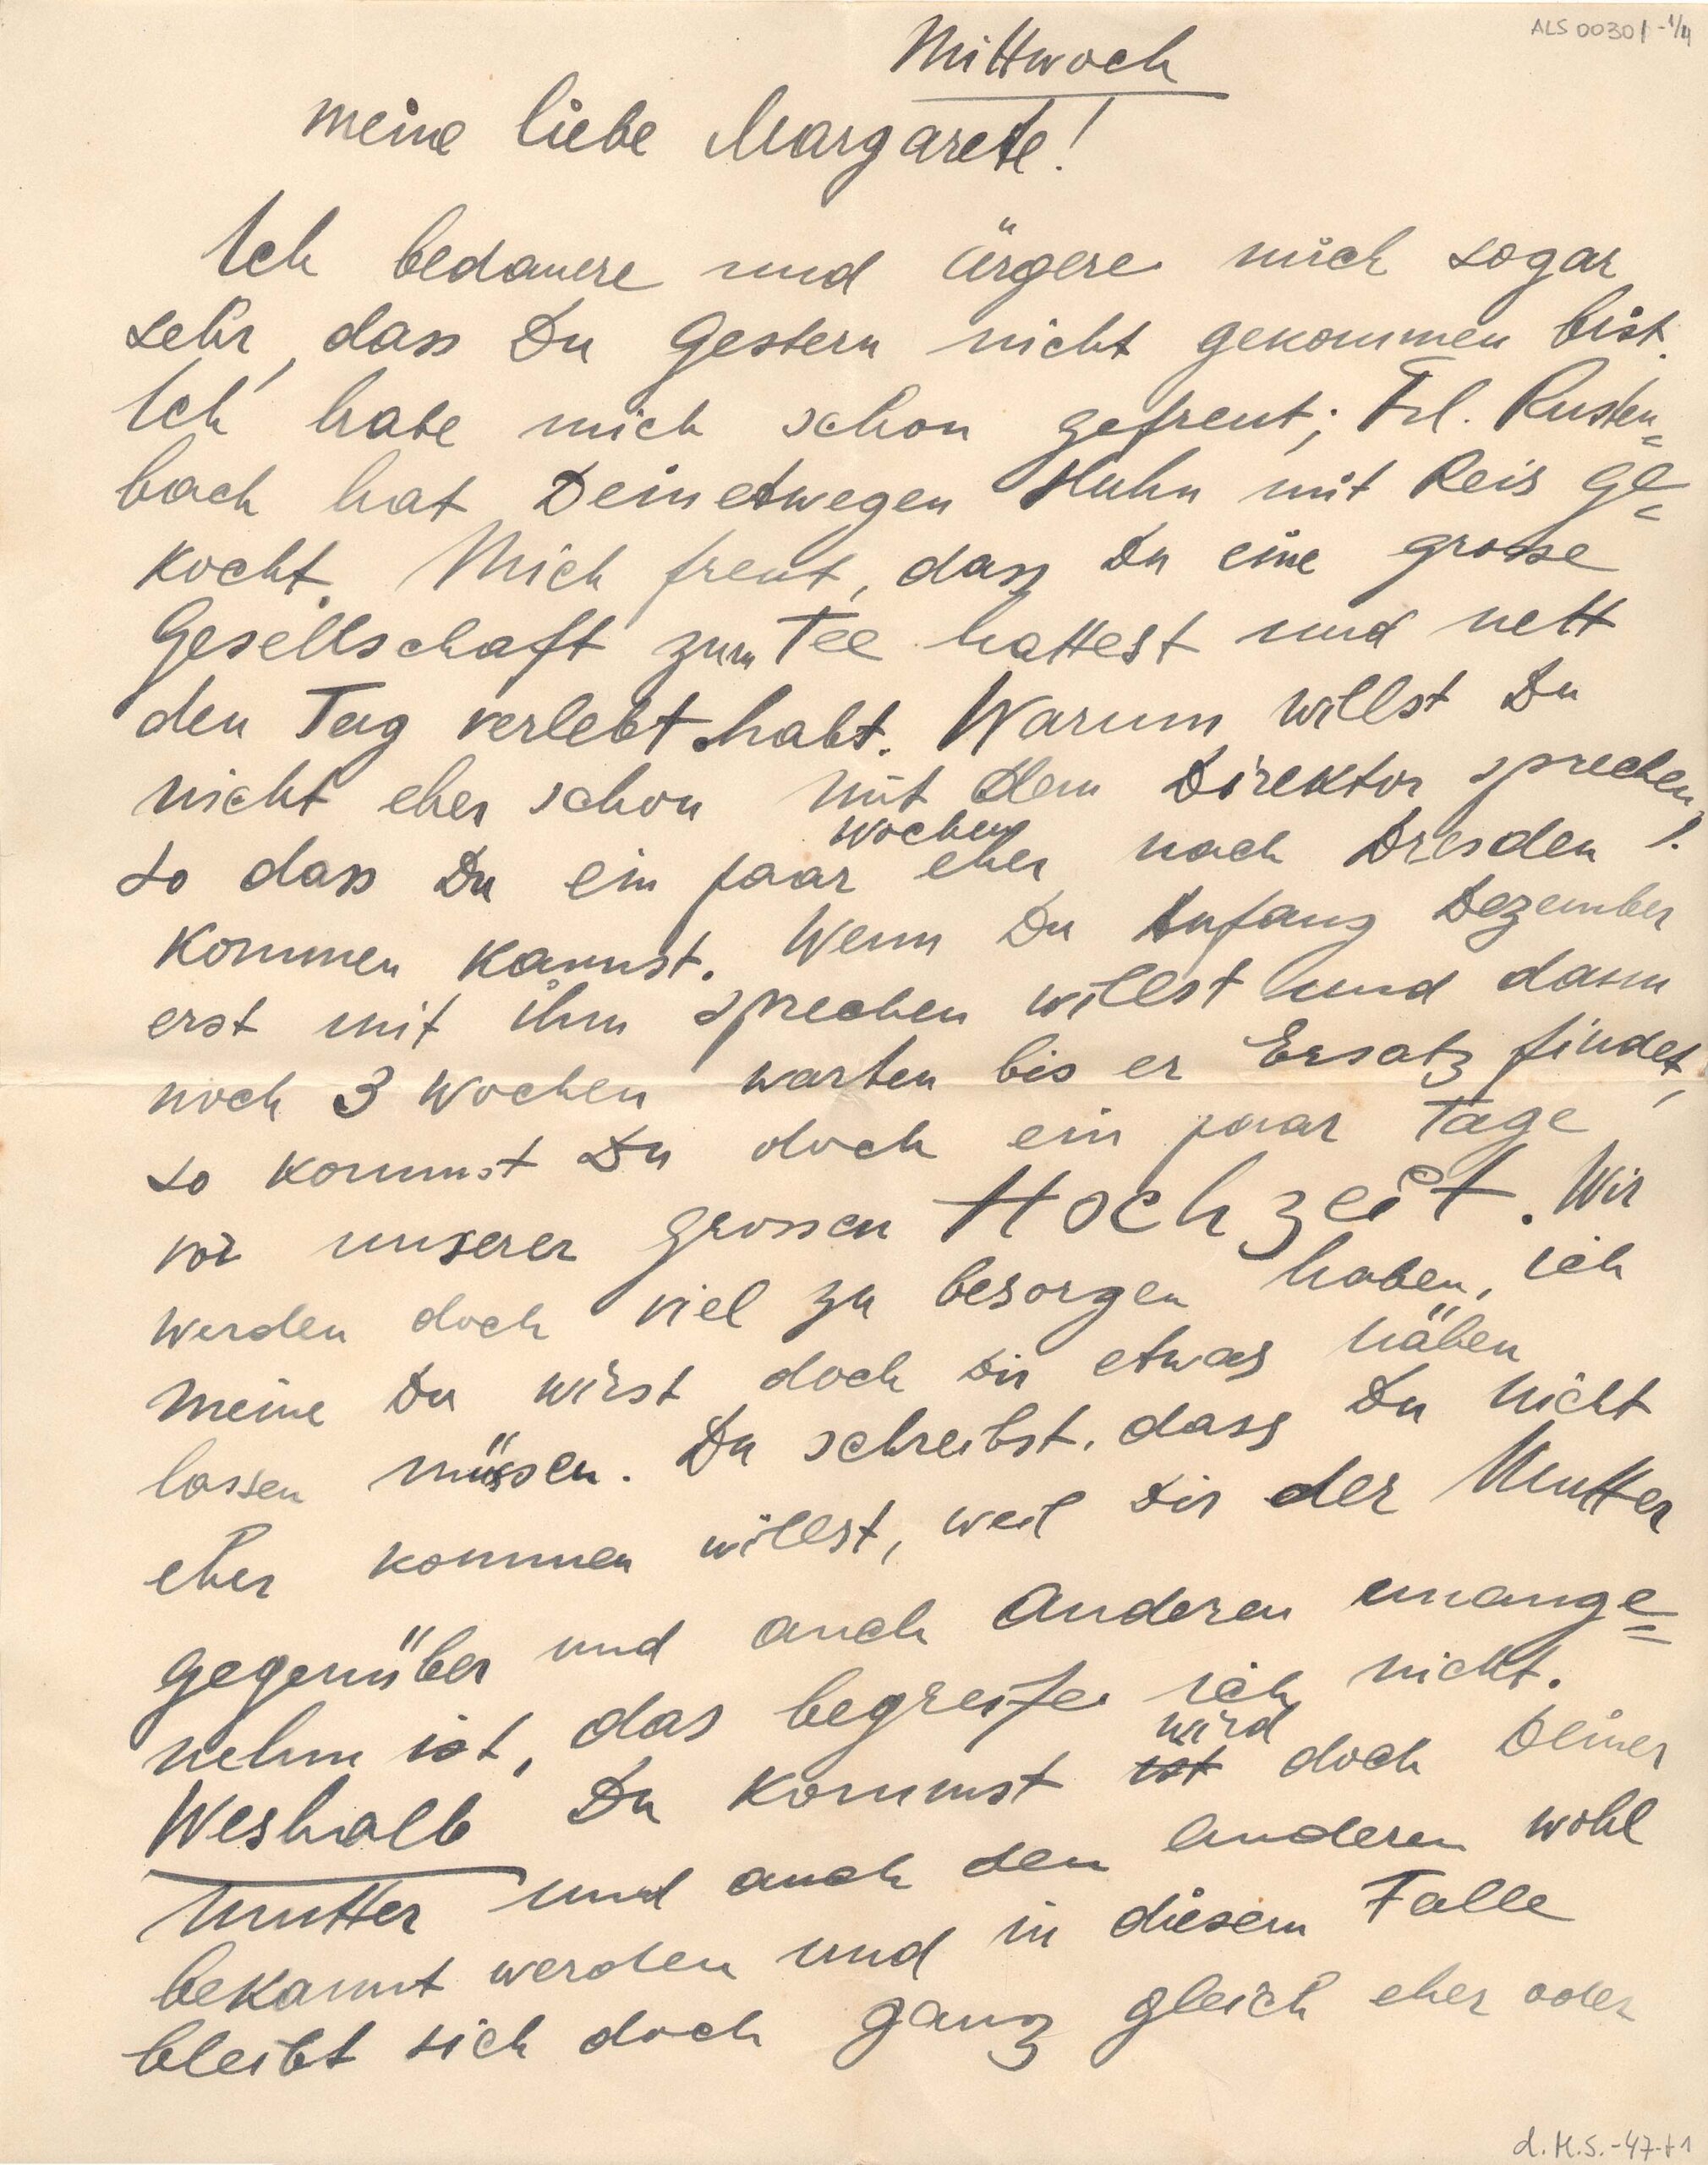 ALS 00301-1/4
Mittwoch
meine liebe Margarete!
Ich bedauere und ärgere mich sogar
sehr, dass Du Gestern nicht gekommen bist.
Ich habe mich schon gefreut; Frl. Rusten=
bach hat Deinetwegen Huhn mit Reis ge=
kocht. Mich freut, dass Du eine grosse
Gesellschaft zum Tee hattest und nett
den Tag verlebt habt. Warum willst Du
nicht eher schon mit dem Direktor sprechen,
wochen
so dass Du ein paar eher nach Dresden
kommen kannst. Wenn Du Anfang Dezember
erst mit ihm sprechen willst und dann
noch 3 Wochen warten bis er Ersatz findet,
so kommst Du doch ein paar Tage
vor unserer grossen Hochzeit. Wir
werden doch viel zu besorgen haben, ich
meine Du wirst doch Dir etwas nähen
lassen müssen. Du schreibst, dass Du nicht
eher kommen willst, weil Dir der Mutter
gegenüber und auch Anderen unange=
nehm ist, das begreife ich nicht.
wird
Weshalb Du kommst ist doch Deiner
Mutter und auch den Anderen wohl
bekannt werden und in diesem Falle
bleibt sich doch ganz gleich eher oder
d.H.S.-47-t1